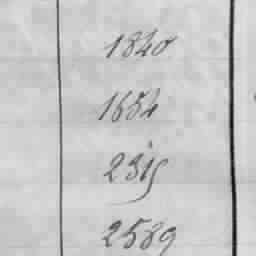 1840
1654
2315
2589